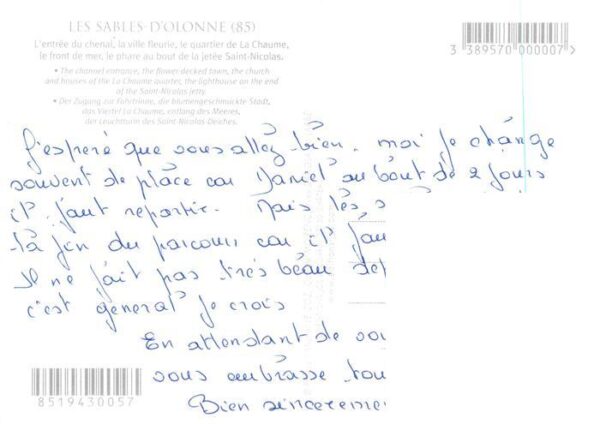 LES SABLES D'OLONNE (85)
L'entrée du chenal, la ville fleurie, le quartier de La Chaume,
le front de mer, le phare au bout de la jetée Saint-Nicolas.
• The channel entrance, the flower decked town, the church
and houses of the La Chaume quarter, the lighthouse on the end
of the Saint-Nicolas jetty.
• Der Zugang zur Fahrtrinne, die blumengeschmückte Stadt,
das Viertel La Chaume, entlang des Meeres,
der Leuchtturm des Saint-Nicolas-Deiches.
3 389570 000007
J'espere que vous allez bien. moi je change
souvent de place car Daniel au bout de 2 jours
il faut repartir. Mais
la fin du parcours car il
Il ne fait pas très beau
c'est general je crois
En attendant de
vous embrasse
Bien
8519430057